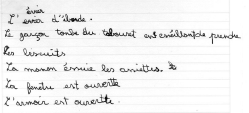 évier
L' evier d'éborde.
Le garçon tombe du tabouret en esséillant de prendre
les biscuits
La maman éssuie les assiettes.
La fenêtre est ouverte
L'armoir est ouverte.